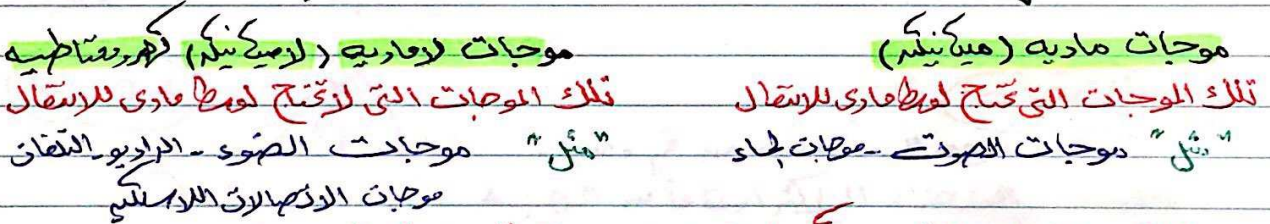 موجات مادية (ميكانيكية)
تلك الموجات التي تحتاج لوسط مادي للانتقال
"مثل" موجات الصوت - موجات الماء
موجات لامادية (لاميكانيكية) كهرومغناطيسية
تلك الموجات التي لا تحتاج لوسط مادي للانتقال
"مثل" موجات الضوء - الراديو - التلفاز
موجات الاتصالات اللاسلكية